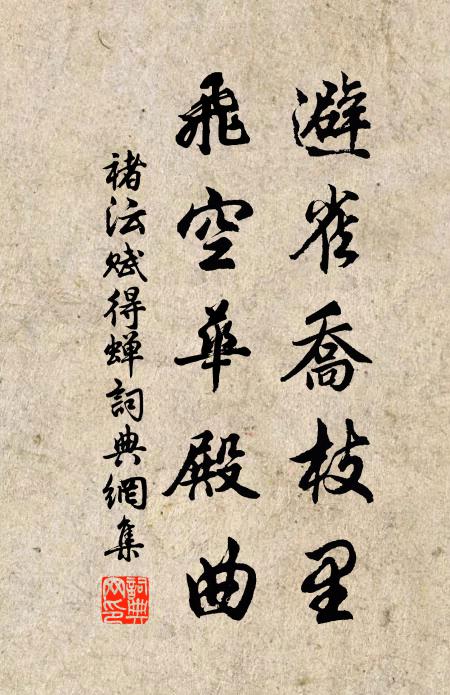 避雀喬枝里
飛空華殿曲
褚沄賦得蟬詞典網集
詞典
網印